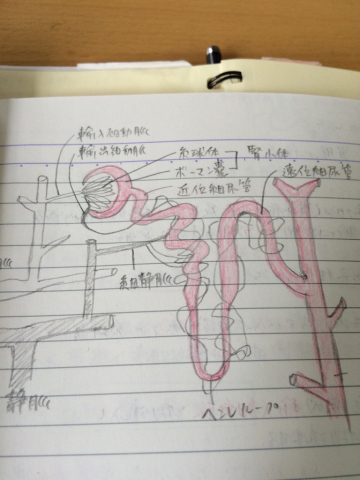 輸入細動脈
輸出細動脈
糸球体
ボーマン嚢
腎小体
近位細尿管
遠位細尿管
細静脈
脈
脈
静脈
ヘンレループ